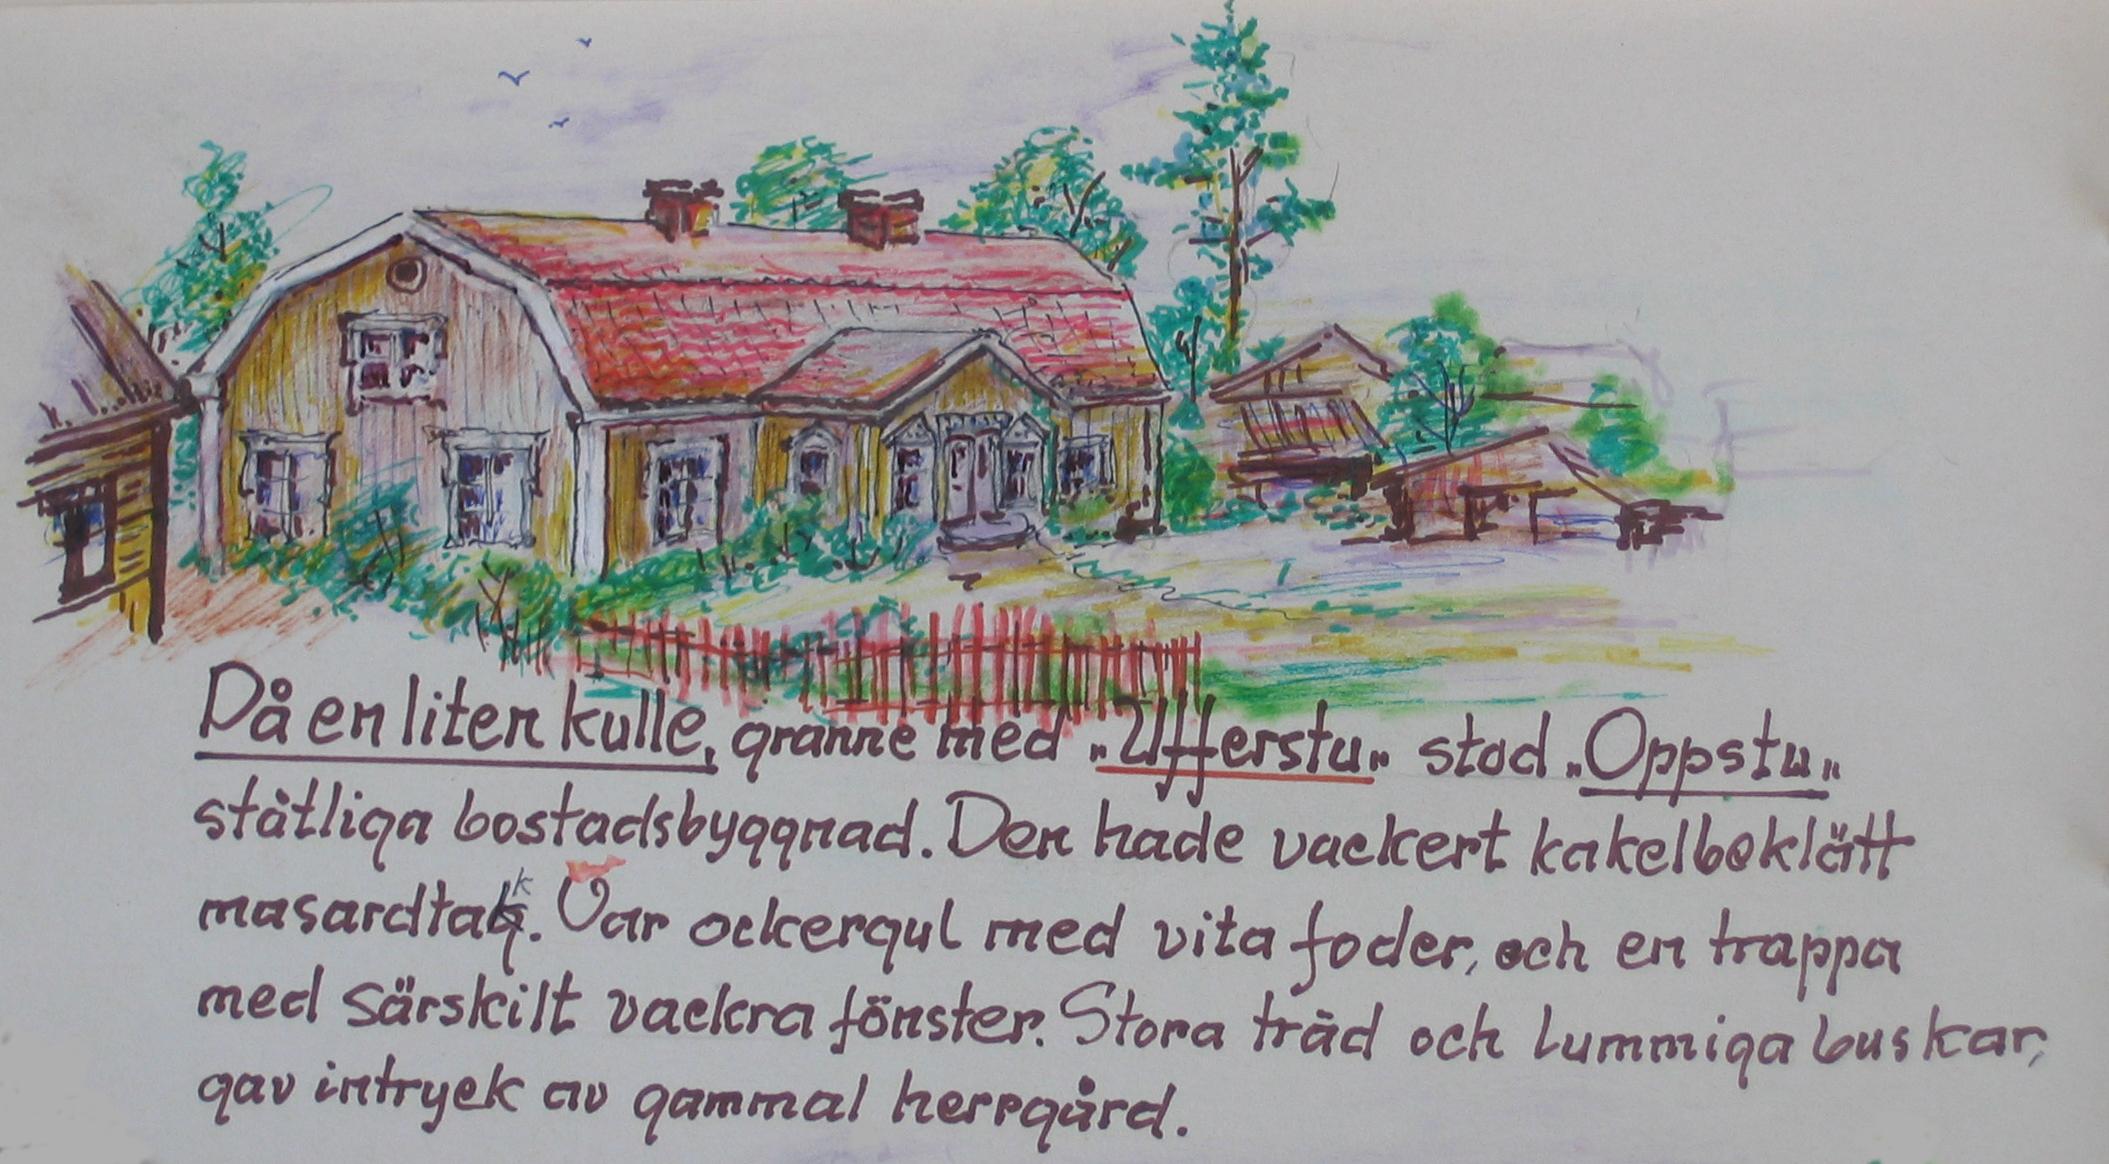 På en liten kulle, granne med „Ufferstu„ stod „Oppstu„
ståtliga bostadsbyggnad. Den hade vackert kakelbeklätt
masardtak. Var ockergul med vita foder, och en trappa
med särskilt vackra fönster. Stora träd och lummiga buskar,
gav intryck av gammal herrgård.